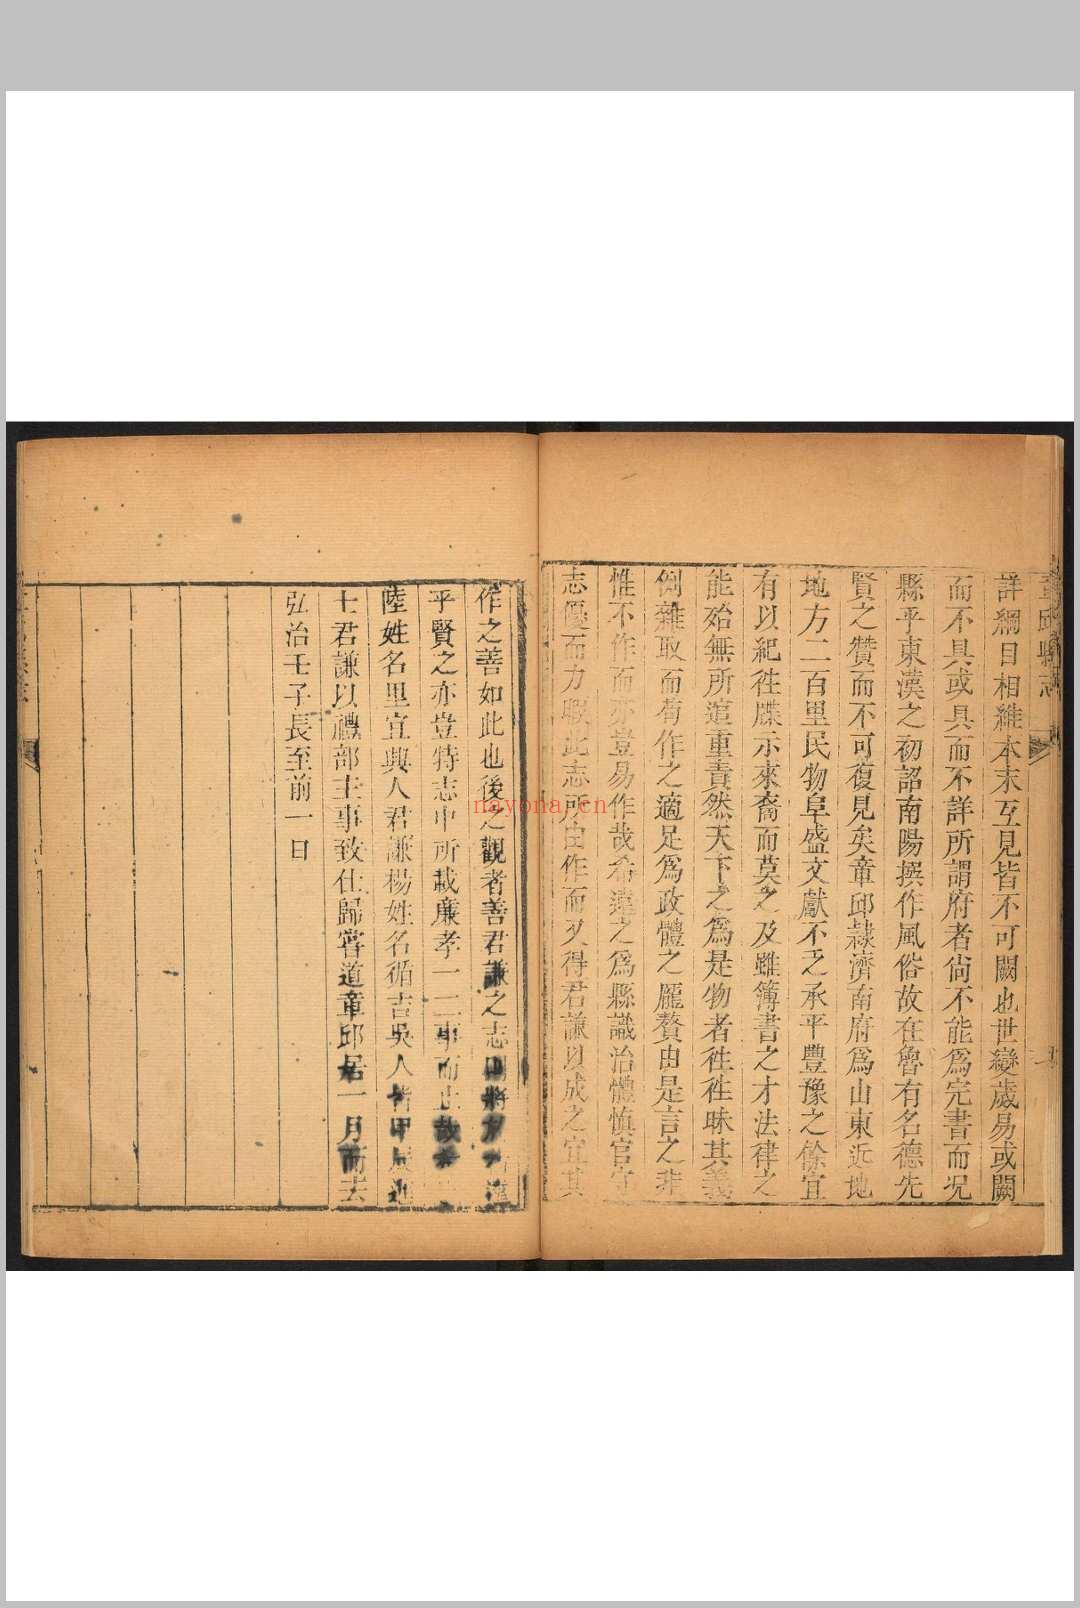 章邱縣志
詳綱目相維本末互見皆不可闕也世變歲易或闕
而不具或具而不詳所謂府者尙不能爲完書而况
縣乎東漢之初詔南陽撰作風俗故在魯有名德先
賢之贊而不可復見矣章邱隷濟南府爲山東近地
地方二百里民物阜盛文獻不乏承平豐豫之餘宜
有以紀徃牒示來裔而莫之及雖簿書之才法律之
能殆無所逭重責然天下之爲是物者徃徃昧其義
例雜取而苟作之適足爲政體之龎贅由是言之非
惟不作而亦豈易作哉希達之爲縣識治體慎官守
志優而力暇此志所由作而又得君謙以成之宜其
作之善如此也後之觀者善君謙之志
乎賢之亦豈特志中所載廉孝一二事而止故
陸姓名里宜興人君謙楊姓名循吉吳人皆甲辰進
士君謙以禮部主事致仕歸嘗道章邱居一月而去
弘治壬子長至前一日
nayona.cn